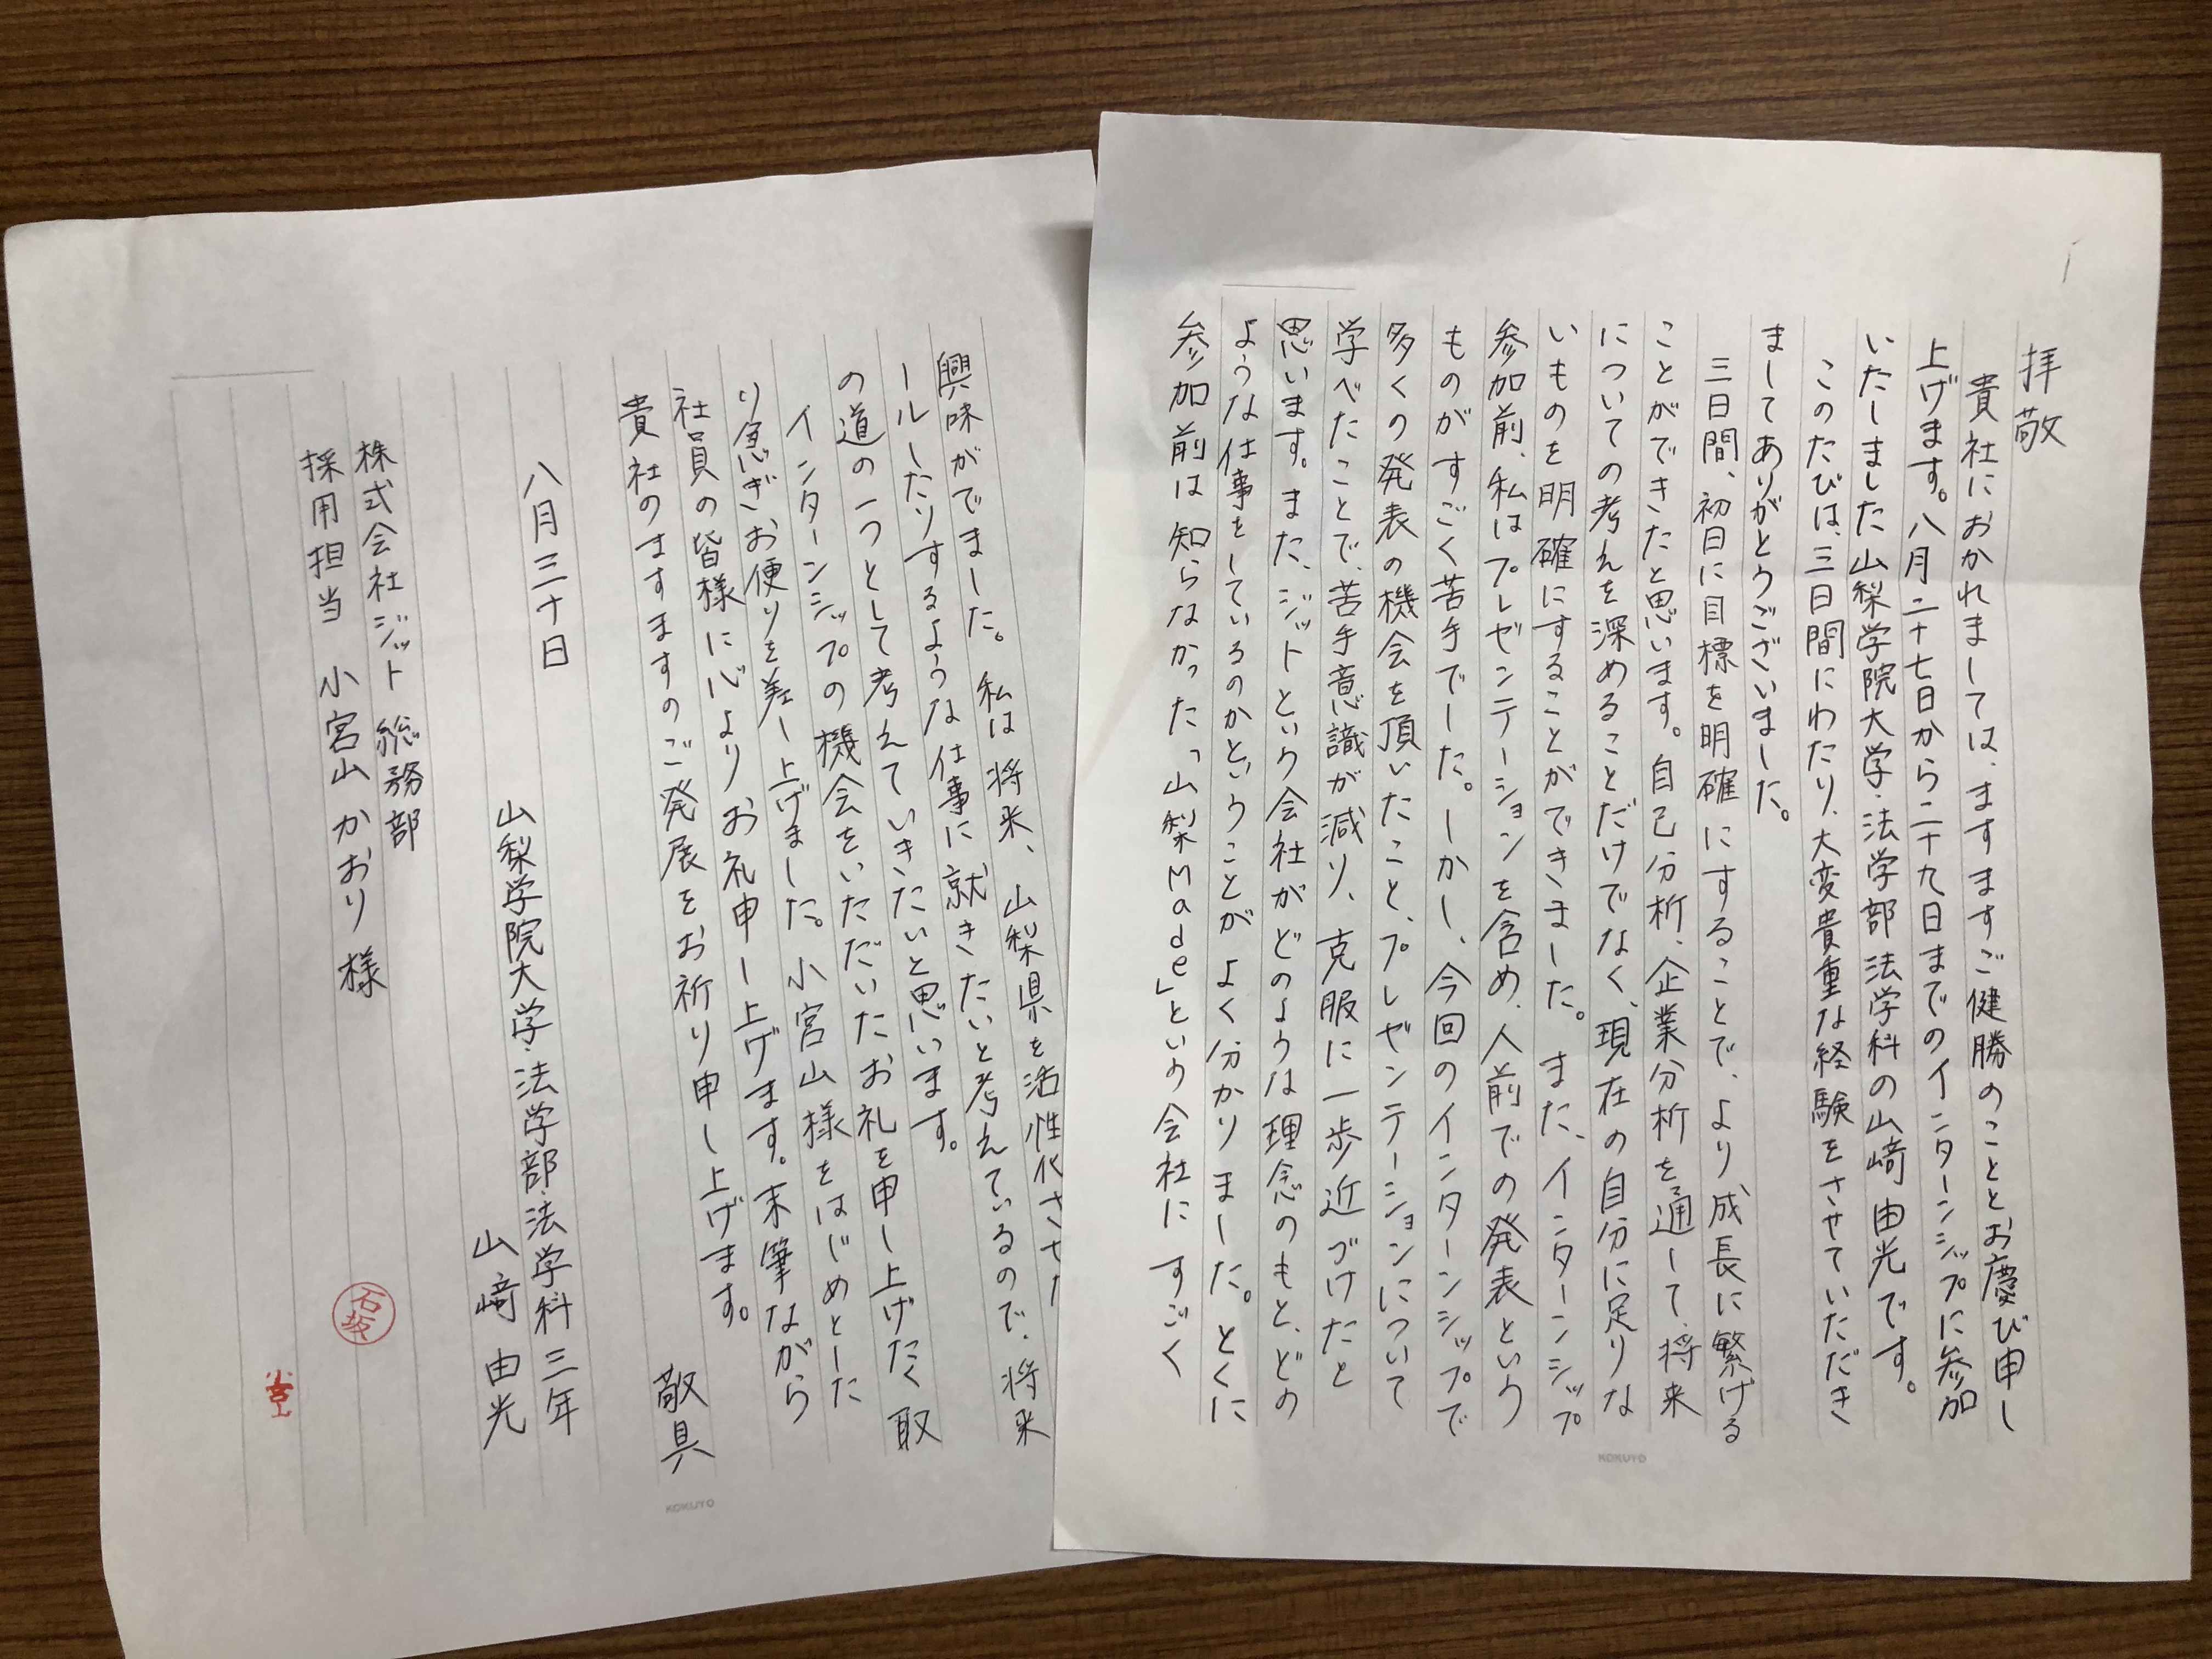 拝敬
貴社におかれましては、ますますご健勝のこととお慶び申し
上げます。八月二十七日から二十九日までのインターンシップに参加
いたしました山梨学院大学・法学部法学科の山﨑由光です。
このたびは、三日間にわたり、大変貴重な経験をさせていただき
ましてありがとうございました。
三日間、初日に目標を明確にすることで、より成長に繋げる
ことができたと思います。自己分析、企業分析を通して、将来
についての考えを深めることだけでなく、現在の自分に足りな
いものを明確にすることができました。また、インターンシップ
参加前、私はプレゼンテーションを含め、人前での発表という
ものがすごく苦手でした。しかし、今回のインターンシップで
多くの発表の機会を頂いたこと、プレゼンテーションについて
学べたことで、苦手意識が減り、克服に一歩近づけたと
思います。また、ジットという会社がどのような理念のもと、どの
ような仕事をしているのかということがよく分かりました。とくに
参加前は知らなかった「山梨Made」という会社にすごく
KOKUYO
興味がでました。私は将来、山梨県を活性化させ
ールしたりするような仕事に就きたいと考えているので、将来
の道の一つとして考えていきたいと思います。
インターンシップの機会をいただいたお礼を申し上げたく取
り急ぎお便りを差し上げました。小宮山様をはじめとした
社員の皆様に心よりお礼申し上げます。末筆ながら
貴社のますますのご発展をお祈り申し上げます。
敬具
八月三十日
山梨学院大学・法学部・法学科三年
山﨑由光
株式会社ジット総務部
採用担当 小宮山かおり様
KOKUYO